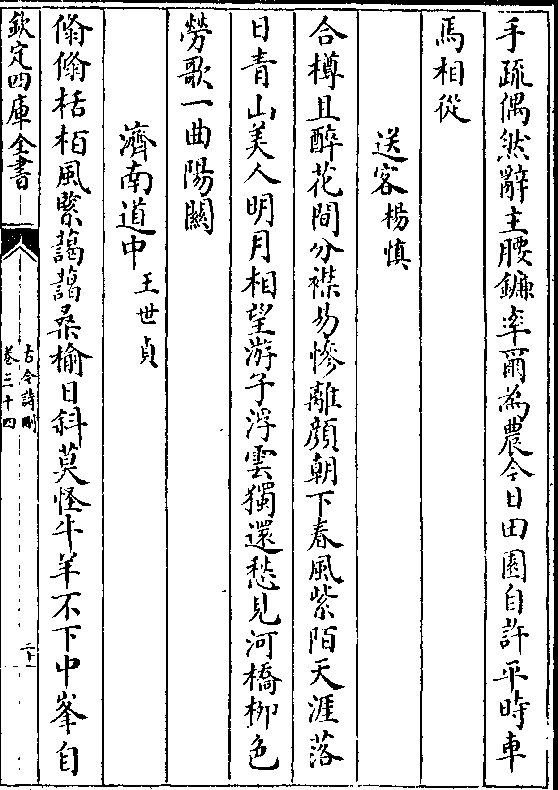 手疏偶然辭主腰鐮率爾為農今日田園自許平時車
馬相從
送客楊慎
合樽且醉花間分襟易慘離顔朝下春風紫陌天涯落
日青山美人明月相望游子浮雲獨還愁見河橋柳色
勞歌一曲陽關
濟南道中王世貞
翛翛栝栢風緊藹藹桑榆日斜莫怪牛羊不下中峯自
欽定四庫全書
古今詩刪
卷三十四